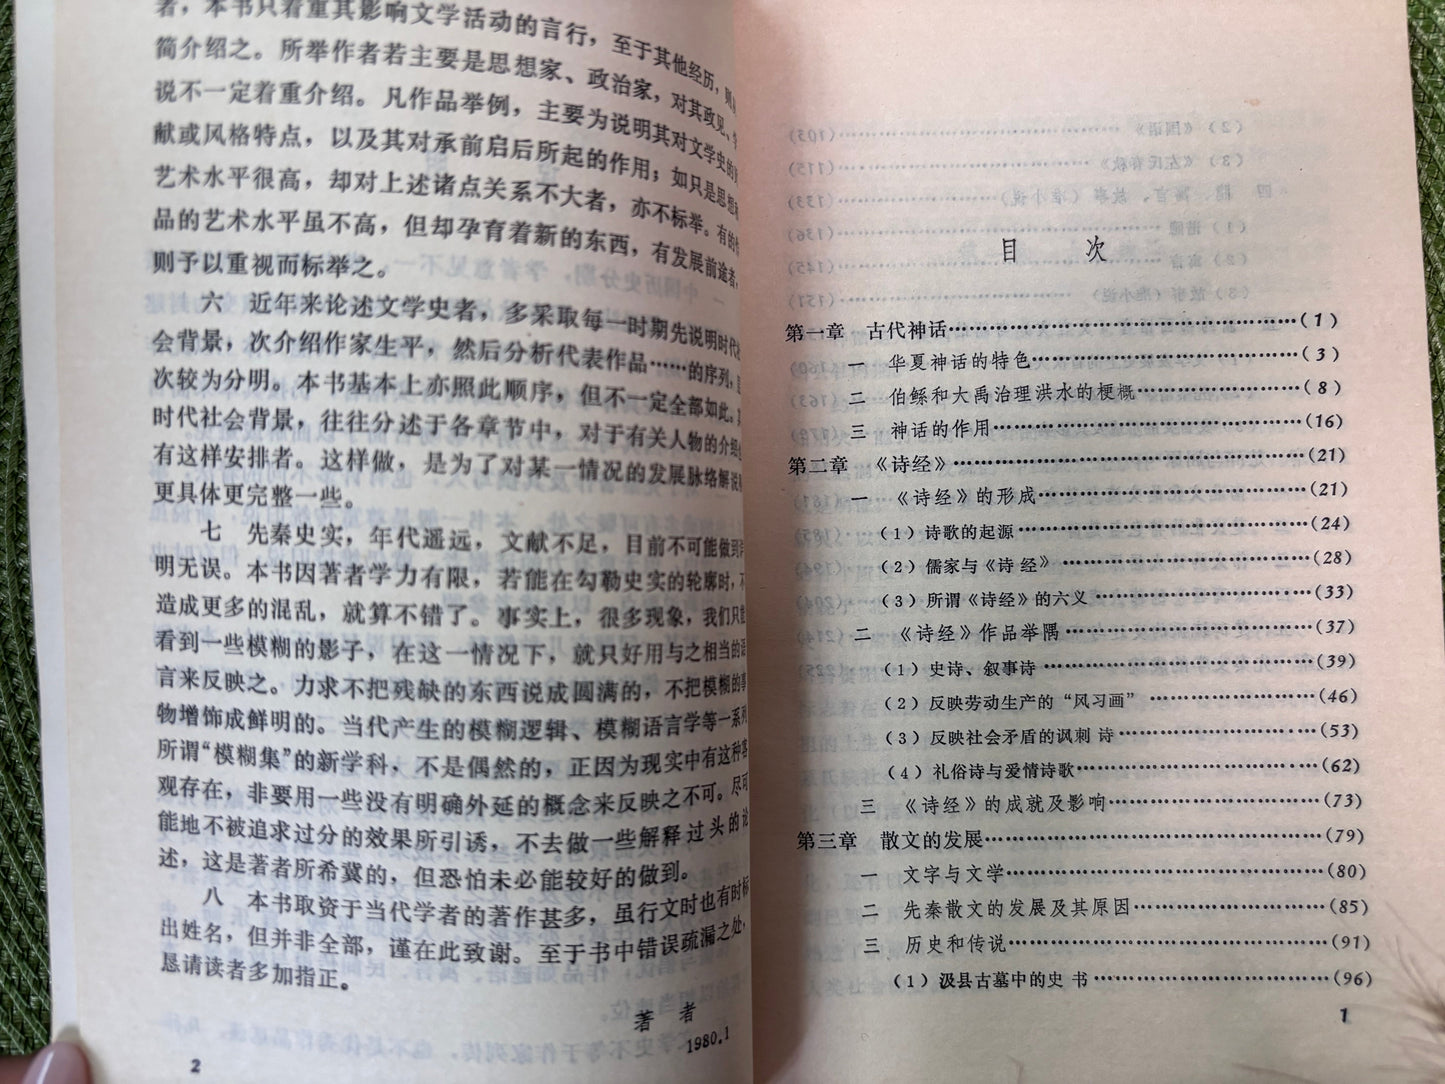 者，本书只着重其影响文学活动的言行，至于其他经历，则
简介绍之。所举作者若主要是思想家、政治家，对其政见、
说不一定着重介绍。凡作品举例，主要为说明其对文学史的
献或风格特点，以及其对承前启后所起的作用；如只是思想
艺术水平很高，却对上述诸点关系不大者，亦不标举。有的
品的艺术水平虽不高，但却孕育着新的东西，有发展前途者，
则予以重视而标举之。
六　近年来论述文学史者，多采取每一时期先说明时代
会背景，次介绍作家生平，然后分析代表作品……的序列，
次较为分明。本书基本上亦照此顺序，但不一定全部如此。
时代社会背景，往往分述于各章节中，对于有关人物的介绍
有这样安排者。这样做，是为了对某一情况的发展脉络解说
更具体更完整一些。
七　先秦史实，年代遥远，文献不足，目前不可能做到
明无误。本书因著者学力有限，若能在勾勒史实的轮廓时，不
造成更多的混乱，就算不错了。事实上，很多现象，我们只能
看到一些模糊的影子，在这一情况下，就只好用与之相当的语
言来反映之。力求不把残缺的东西说成圆满的，不把模糊的事
物增饰成鲜明的。当代产生的模糊逻辑、模糊语言学等一系列
所谓“模糊集”的新学科，不是偶然的，正因为现实中有这种客
观存在，非要用一些没有明确外延的概念来反映之不可。尽可
能地不被追求过分的效果所引诱，不去做一些解释过头的论
述，这是著者所希冀的，但恐怕未必能较好的做到。
八　本书取资于当代学者的著作甚多，虽行文时也有时标
出姓名，但并非全部，谨在此致谢。至于书中错误疏漏之处，
恳请读者多加指正。
著　者
1980.1
2
目　次
第一章　古代神话……………………………………(1)
一　华夏神话的特色…………………………………(3)
二　伯鲧和大禹治理洪水的梗概……………………(8)
三　神话的作用………………………………………(16)
第二章　《诗经》……………………………………(21)
一　《诗经》的形成…………………………………(21)
（1）诗歌的起源……………………………………(24)
（2）儒家与《诗经》………………………………(28)
（3）所谓《诗经》的六义…………………………(33)
二　《诗经》作品举隅………………………………(37)
（1）史诗、叙事诗…………………………………(39)
（2）反映劳动生产的“风习画”…………………(46)
（3）反映社会矛盾的讽刺诗………………………(53)
（4）礼俗诗与爱情诗歌……………………………(62)
三　《诗经》的成就及影响…………………………(73)
第三章　散文的发展…………………………………(79)
一　文字与文学………………………………………(80)
二　先秦散文的发展及其原因………………………(85)
三　历史和传说………………………………………(91)
（1）汲县古墓中的史书……………………………(96)
1